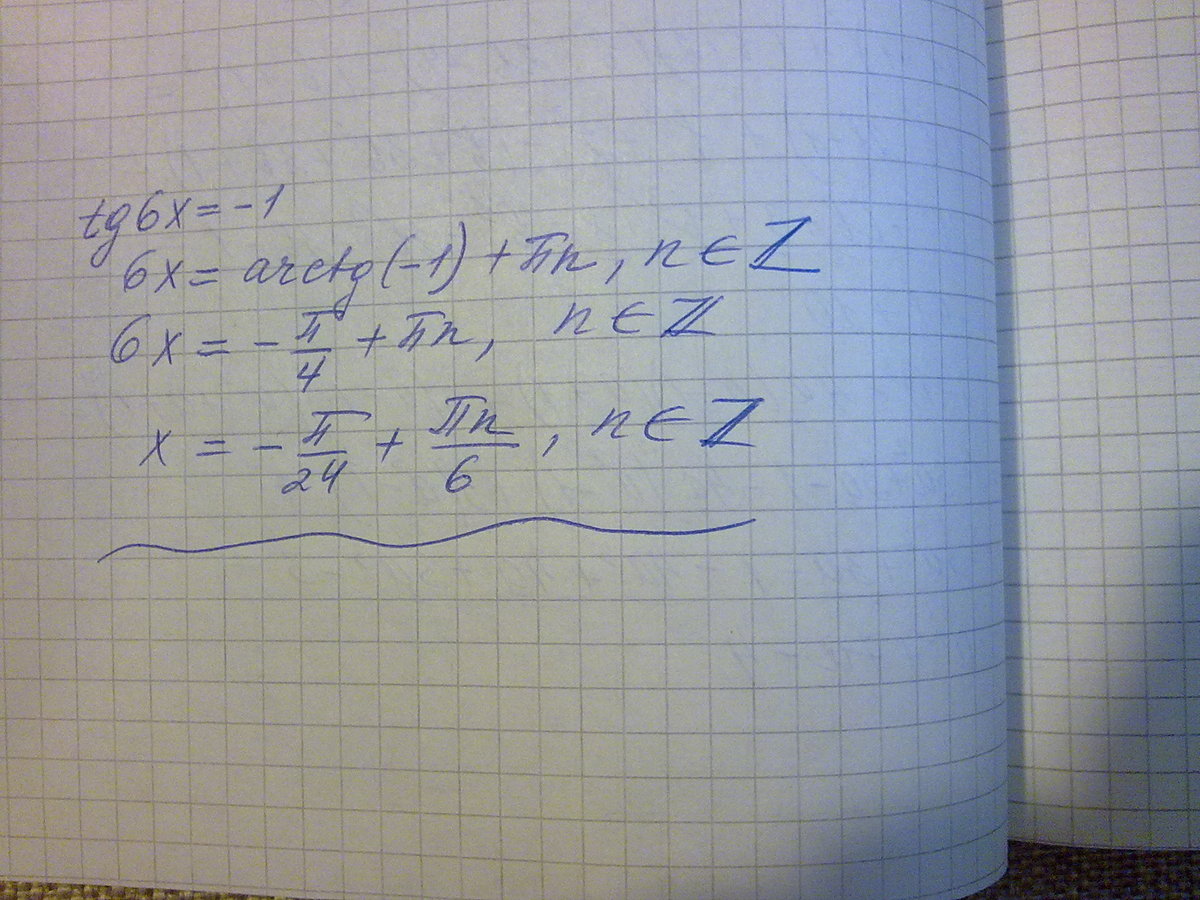 tg6x = -1
6x = arctg(-1) + πn, n ∈ ℤ
6x = -π/4 + πn, n ∈ ℤ
x = -π/24 + πn/6, n ∈ ℤ